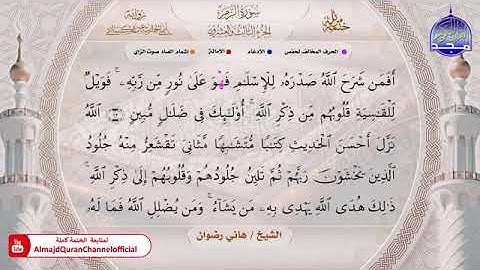 سورة الزمر
الجزء الثالث والعشرون
الحرف المخالف لحفص
الإدغام
الإمالة
إشمام الصاد صوت الزاي
أَفَمَن شَرَحَ اللَّهُ صَدْرَهُ لِلْإِسْلَٰمِ فَهْوَ عَلَىٰ نُورٍ مِّن رَّبِّهِ فَوَيْلٌ
لِّلْقَٰسِيَةِ قُلُوبُهُم مِّن ذِكْرِ اللَّهِ أُوْلَٰٓئِكَ فِي ضَلَٰلٍ مُّبِينٍ اللَّهُ
نَزَّلَ أَحْسَنَ الْحَدِيثِ كِتَٰبًا مُّتَشَٰبِهًا مَّثَانِيَ تَقْشَعِرُّ مِنْهُ جُلُودُ
الَّذِينَ يَخْشَوْنَ رَبَّهُمْ ثُمَّ تَلِينُ جُلُودُهُمْ وَقُلُوبُهُمْ إِلَىٰ ذِكْرِ اللَّهِ
ذَٰلِكَ هُدَى اللَّهِ يَهْدِي بِهِ مَن يَشَآءُ وَمَن يُضْلِلِ اللَّهُ فَمَا لَهُ
الشيخ / هاني رضوان
لمتابعة الختمة كاملة
AlmajdQuranChannelofficial